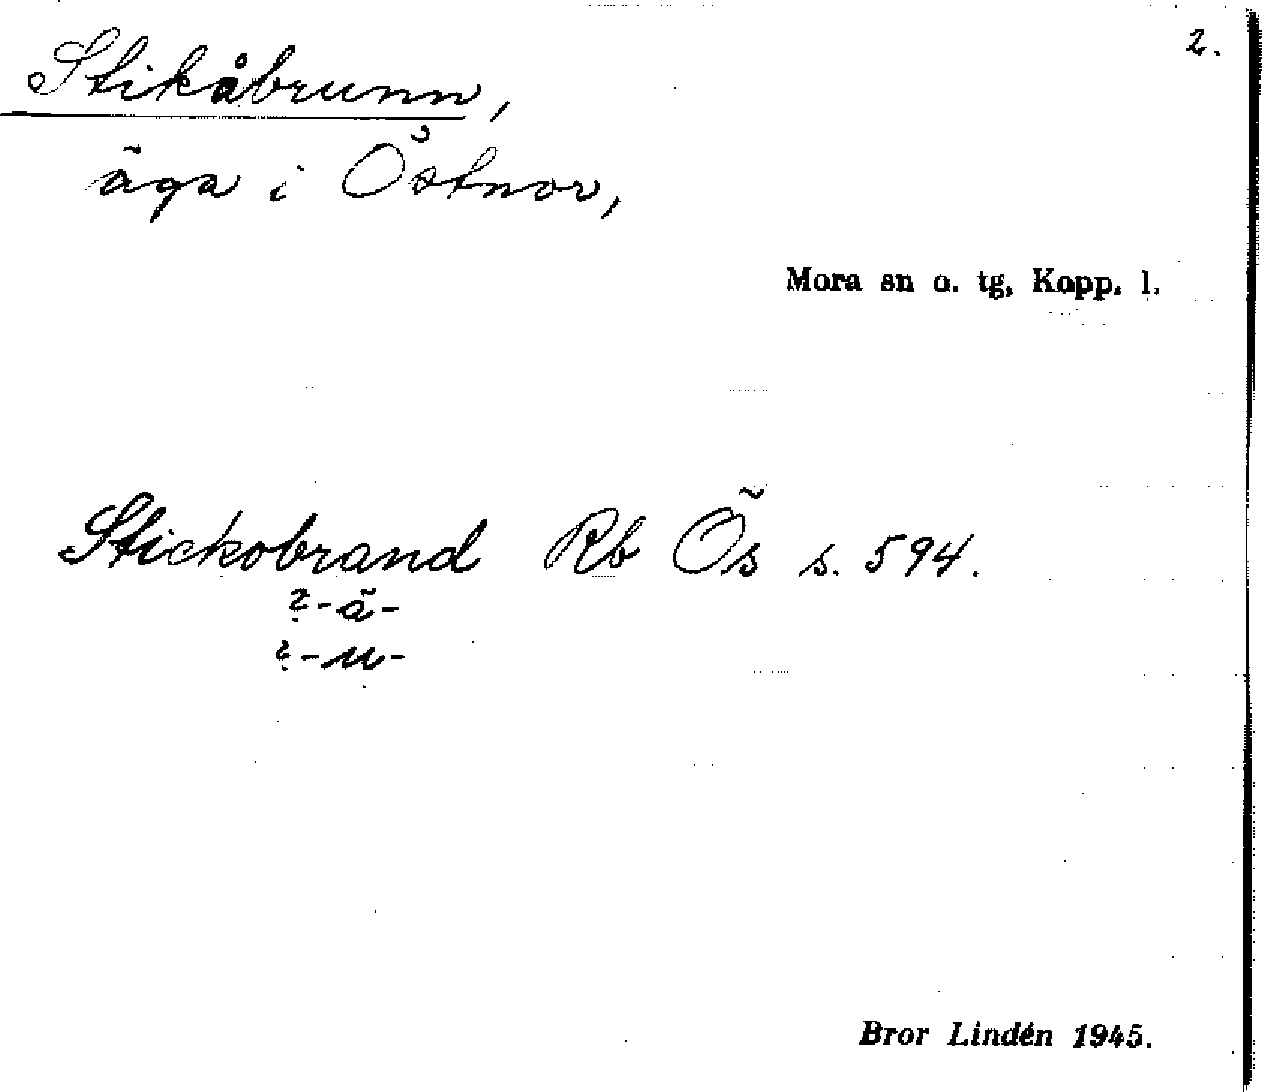 2.
Stikåbrunn,
äga i Östnor,
Mora sn o. tg, Kopp. l.
Stickobrand Rb Ös s. 594.
?-ä-
?-u-
Bror Lindén 1945.